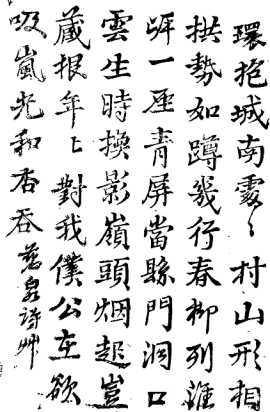 環抱城南處〻村山形相
拱勢如蹲幾行春柳列涯
岸一座青屏當縣門洞口
雲生時換影嶺頭烟起豈
藏根年〻對我僕公在欲
吸嵐光和杏吞 泉詩艸